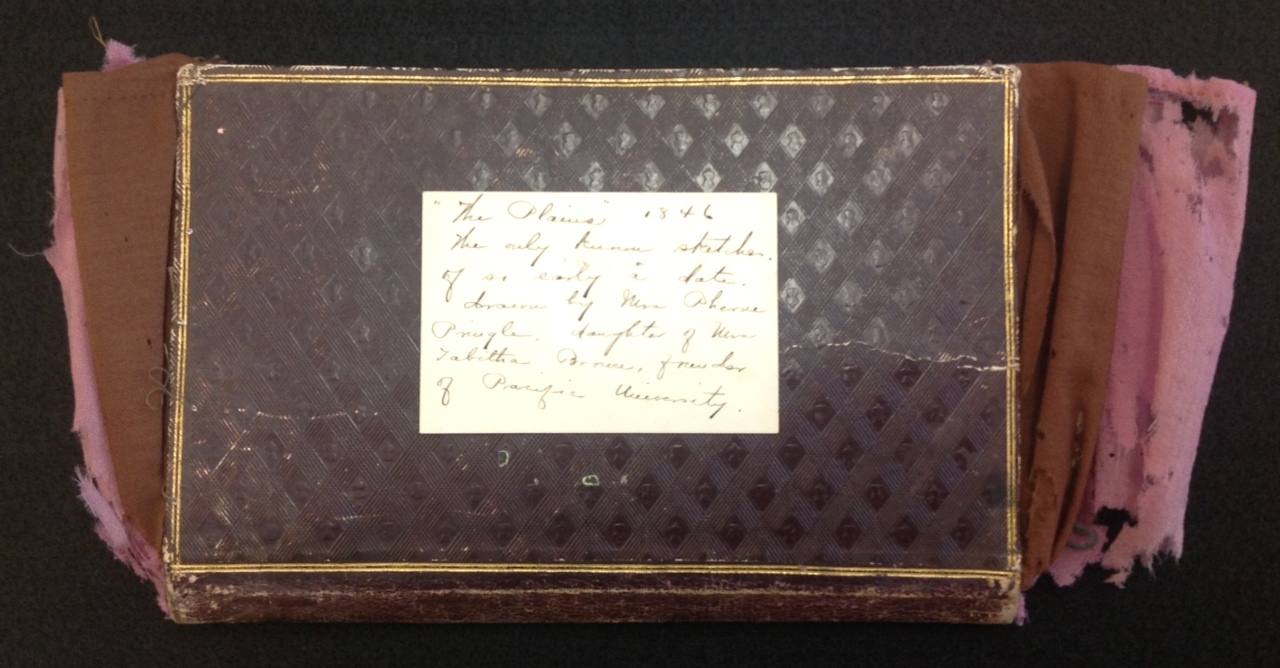 "The Plains" 1846
The only known sketches.
of so early a date.
drawn by Mrs Pherne
Pringle. daughter of Mrs
Tabitha Brown, founder
of Pacific University.